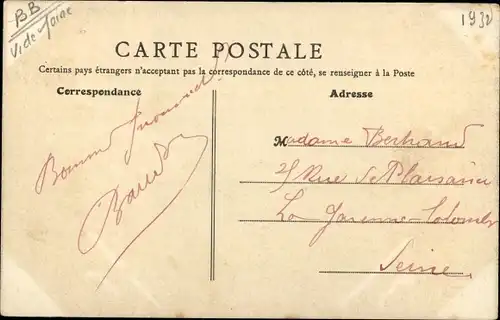 BB
1932
CARTE POSTALE
Certains pays étrangers n'acceptant pas la correspondance de ce côté, se renseigner à la Poste
Correspondance
Adresse
Madame Bertrand
Rue de Plaisance
La Garenne-Colombes
Seine